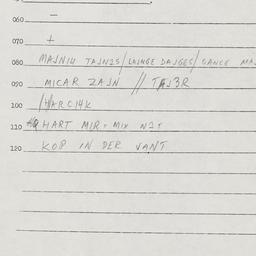 060 —
070 +
080 MAJNIU TAJNIS/LAINGE DAJGES/GANCE MA
090 MICAR ZAJN // TAJ3R
100 /HARCI4K
110 HART MIR + MIX NIT
120 KOP IN DER VANT